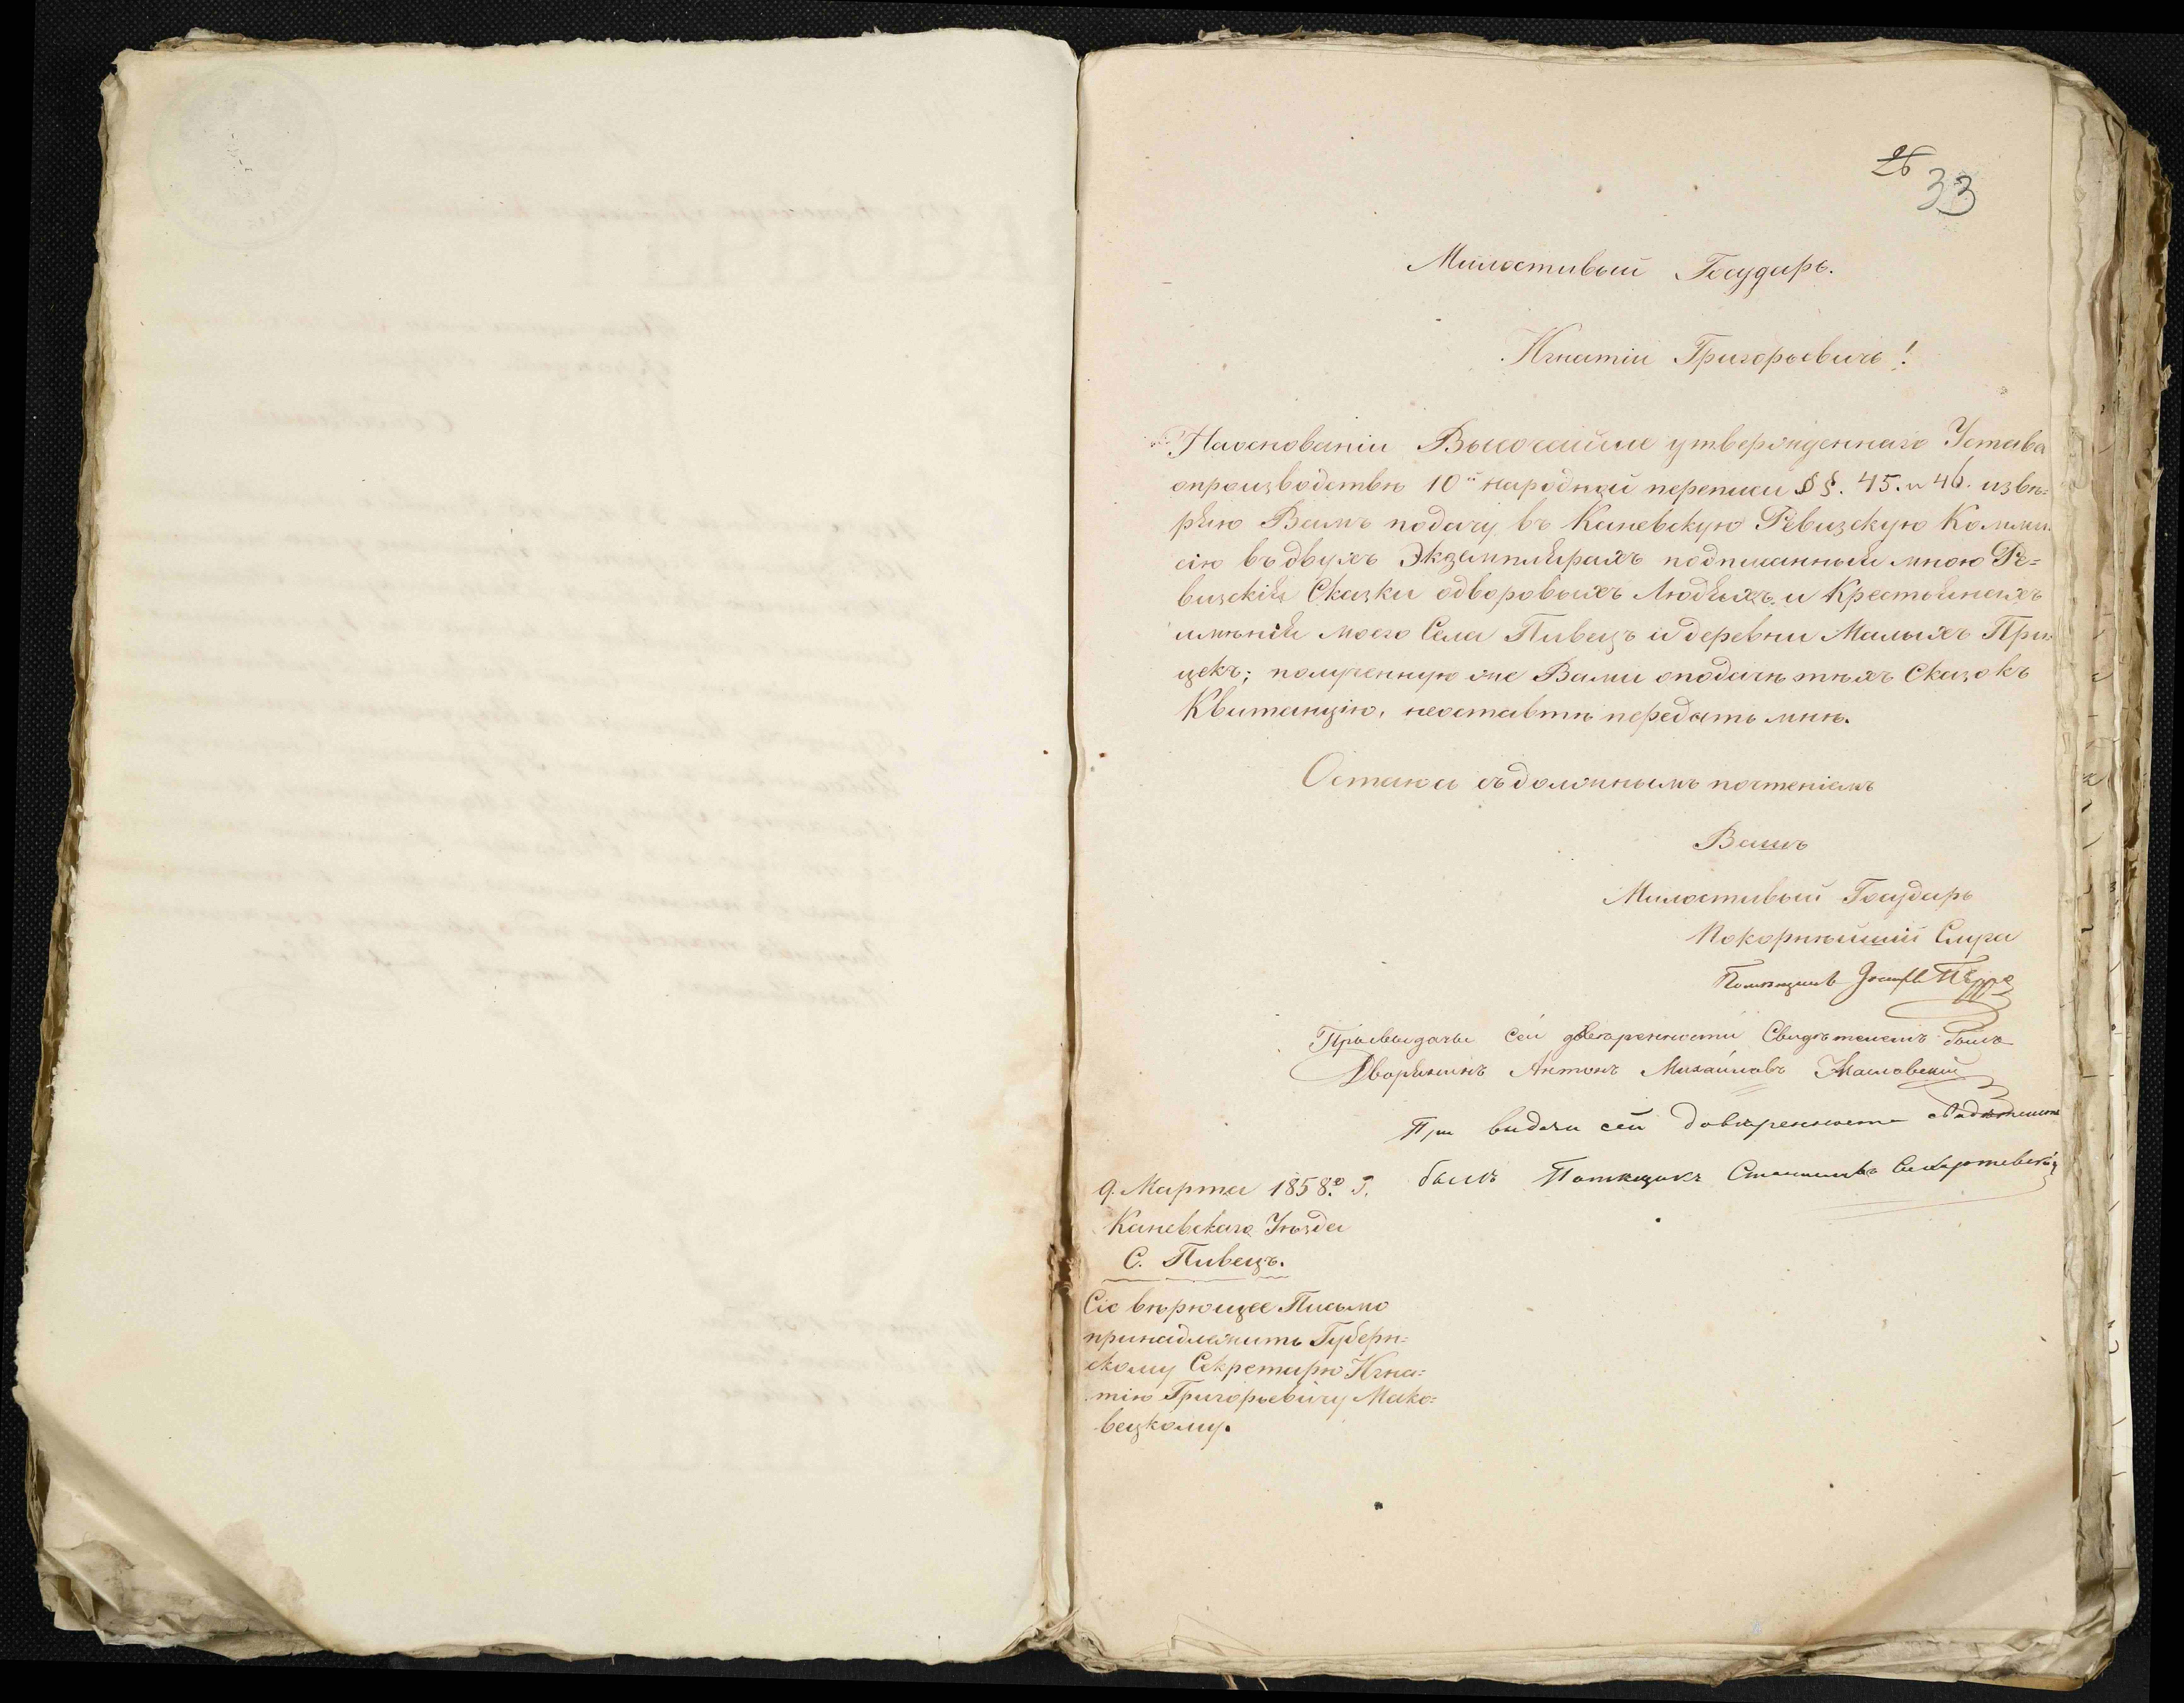 26
33
Милостивый Государь.
Игнатій Григорьевичъ!
Наоснованіи Высочайше утвержденнаго Устава
опроизводствѣ 10й народной переписи §§. 45. и 46. извѣ=
ряю Вамъ подачу въ Каневскую Ревизскую Комми
сію въдвухъ Экземплярахъ подписанныя мною Ре=
визскія Сказки одворовыхъ Людяхъ и Крестьянахъ
имѣнія моего Села Пивецъ и деревни Малыхъ При
цекъ; полученную же Вами оподачѣ тѣхъ Сказокъ
Квитанцію, неоставтѣ передать мнѣ.
Остаюсь съдолжнымъ почтеніемъ
Вашъ
Милостивый Государь
Покорнѣйшій Слуга
Помѣщикъ Іосифъ
Привыдачи сей довѣренности Свидѣтелемъ былъ
Дворянинъ Антонъ Михайловъ
При видачи сей довѣренности свидѣтелемъ
былъ Станиславъ
9. Марта 1858го Г.
Каневскаго Уѣзда
С. Пивецъ.
Сіе вѣрющее Письмо
принадлежитъ Губерн=
скому Секретарю Игна=
тію Григорьевичу Мако=
вецкому.